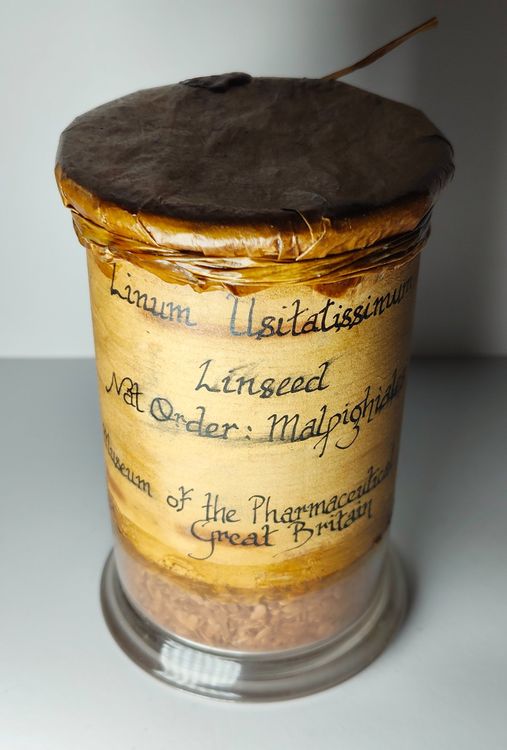 Linum Usitatissimum
Linseed
Nat Order: Malpighiales
Museum of the Pharmaceutical
Great Britain